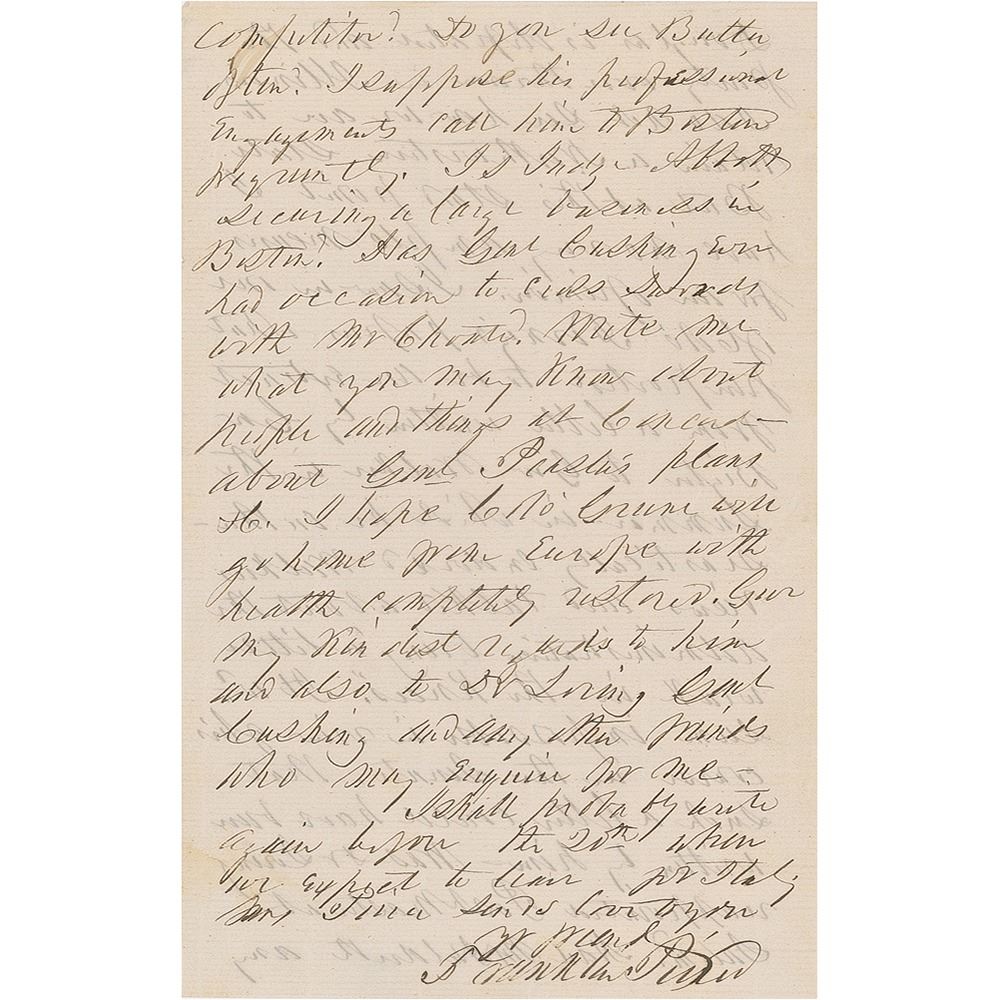 competitor? Do you see Butler
often? I suppose his professional
engagements call him to Boston
frequently. Is Judge Abbott
securing a large business in
Boston? Has Genl Cushing ever
had occasion to cross swords
with Mr Choate? Write me
what you may know about
people and things at Concord—
about Genl Peaslee's plans
&c. I hope Col. Greene will
go home from Europe with
health completely restored. Give
my kindest regards to him
and also to Dr Loring Genl
Cushing and any other friends
who may enquire for me—
I shall probably write
again before the 20th when
we expect to leave for Italy
Mrs Pierce sends love to you
Yr friend
Franklin Pierce